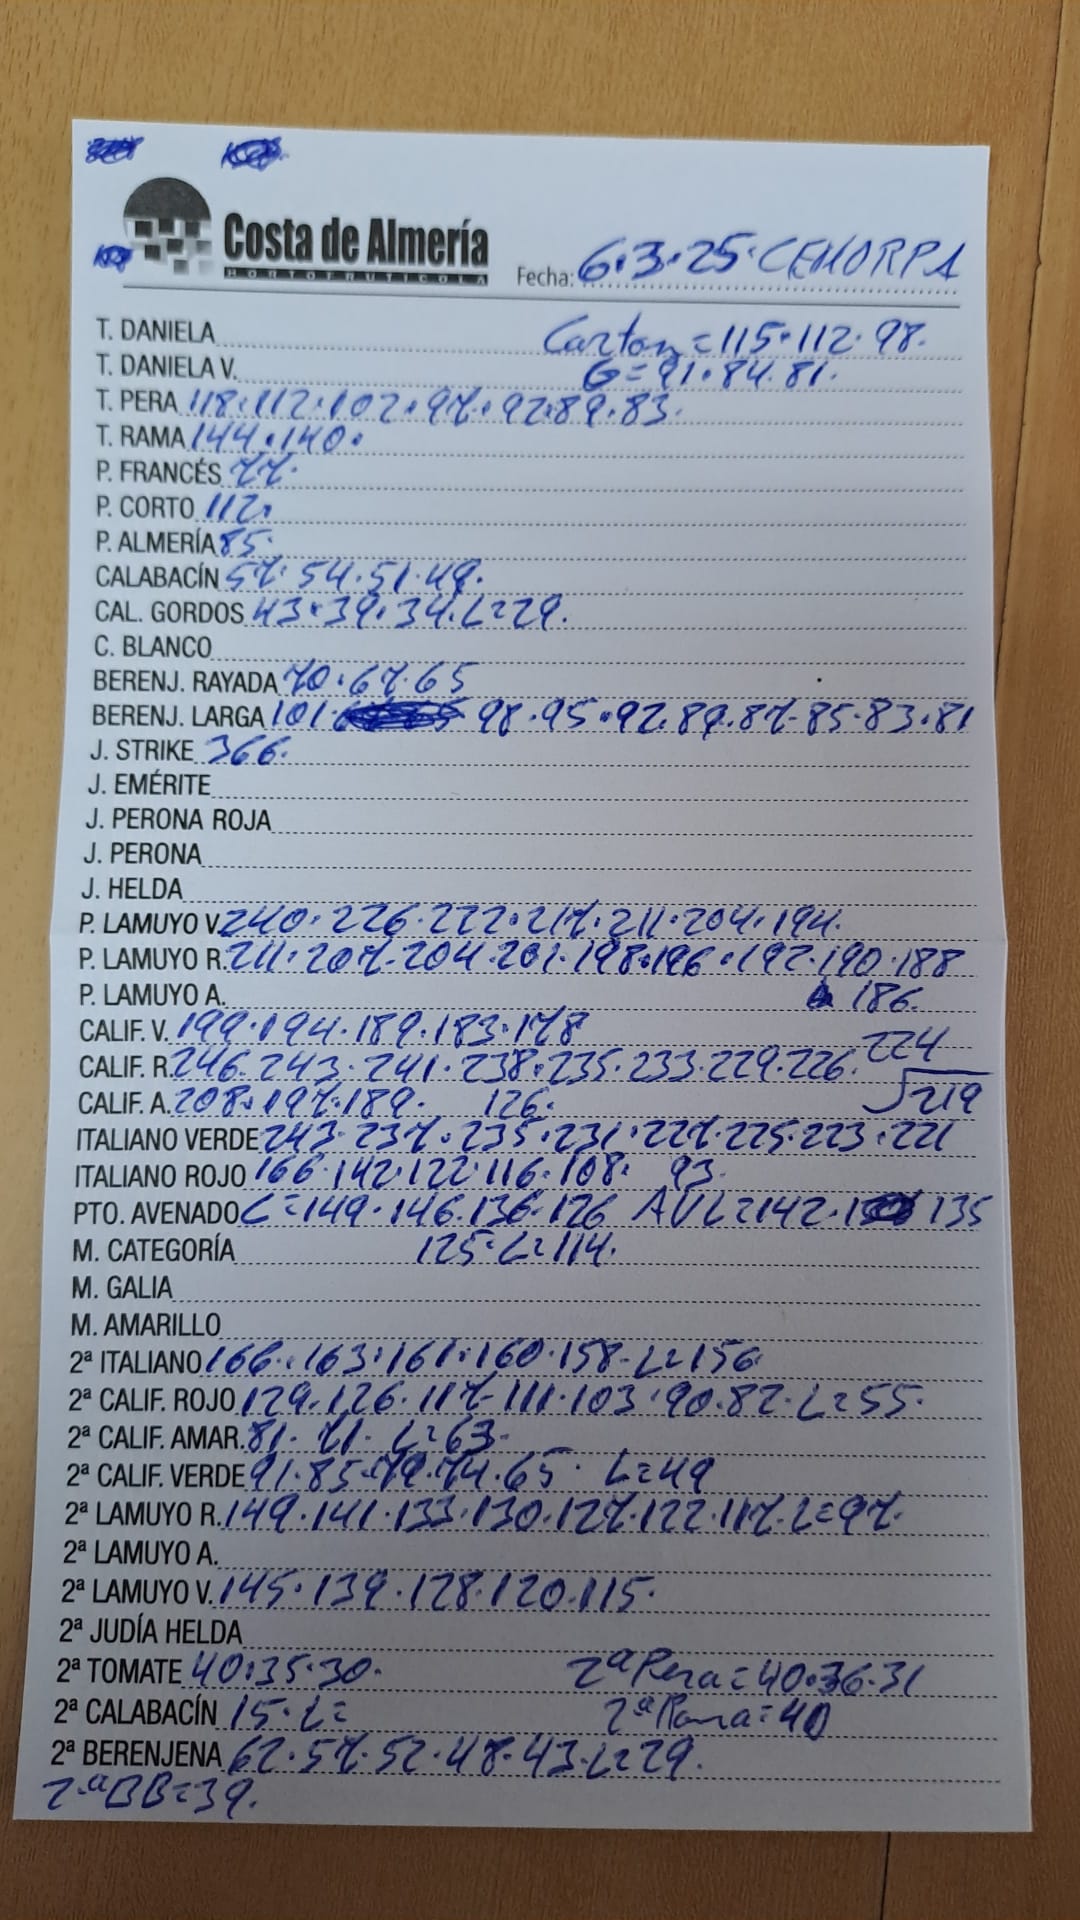 Costa de Almería
HORTOFRUTICOLA
Fecha: 6.3.25. CEHORPA
T. DANIELA Carton = 115.112.98.
T. DANIELA V. G = 91.84.81.
T. PERA 118.112.102.97.92.89.83.
T. RAMA 144.140.
P. FRANCÉS 77.
P. CORTO 112.
P. ALMERÍA 85.
CALABACÍN 57.54.51.49.
CAL. GORDOS 43.39.34.L=29.
C. BLANCO
BERENJ. RAYADA 70.67.65
BERENJ. LARGA 101. 98.95.92.89.87.85.83.81
J. STRIKE 366.
J. EMÉRITE
J. PERONA ROJA
J. PERONA
J. HELDA
P. LAMUYO V. 240.226.222.217.211.204.194.
P. LAMUYO R. 211.207.204.201.198.196.192.190.188
P. LAMUYO A. 186.
CALIF. V. 199.194.189.183.178
CALIF. R. 246.243.241.238.235.233.229.226. 224
219
CALIF. A. 208.197.189. 126.
ITALIANO VERDE 243.237.235.231.227.225.223.221
ITALIANO ROJO 166.142.122.116.108. 93.
PTO. AVENADO C=149.146.136.126 AVL=142. 135
M. CATEGORÍA 125.L=114.
M. GALIA
M. AMARILLO
2ª ITALIANO 166.163.161.160.158.L=156
2ª CALIF. ROJO 129.126.117.111.103.90.82.L=55.
2ª CALIF. AMAR. 81.71. L=63.
2ª CALIF. VERDE 91.85.79.74.65. L=49
2ª LAMUYO R. 149.141.133.130.127.122.117.L=97.
2ª LAMUYO A.
2ª LAMUYO V. 145.139.128.120.115.
2ª JUDÍA HELDA
2ª TOMATE 40.35.30. 2ª Pera=40.36.31
2ª CALABACÍN 15.L= 2ª Rama=40
2ª BERENJENA 62.57.52.47.43.L=29.
2ªBB=39.